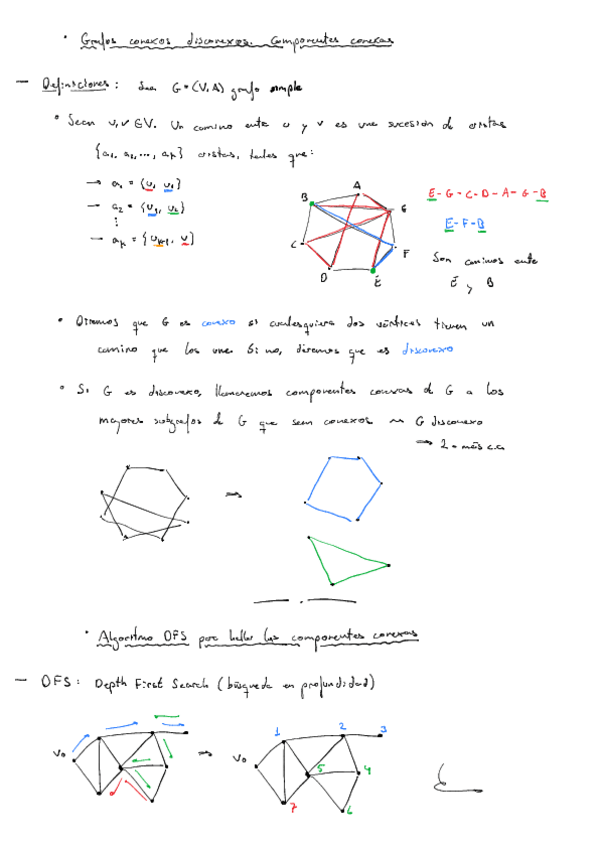 • Grafos conexos disconexos. Componentes conexas
— Definiciones: Sea G=(V,A) grafo simple
• Sean u,v ∈ V. Un camino entre u y v es una sucesión de aristas
{a₁, a₂, ..., aₖ} aristas, tales que:
→ a₁ = {u, u₁}
→ a₂ = {u₁, u₂}
⋮
→ aₖ = {uₖ₋₁, v}
A
B
G
C
F
D
E
E-G-C-D-A-G-B
E-F-B
Son caminos entre
E y B
• Diremos que G es conexo si cualesquiera dos vértices tienen un
camino que los une. Si no, diremos que es disconexo
• Si G es disconexo, llamaremos componentes conexas de G a los
mayores subgrafos de G que sean conexos ~ G disconexo
⇒ 2 o más c.c
⇒
• Algoritmo DFS para hallar las componentes conexas
— DFS: Depth First Search (búsqueda en profundidad)
V₀
⇒
V₀
1
2
3
4
5
6
7